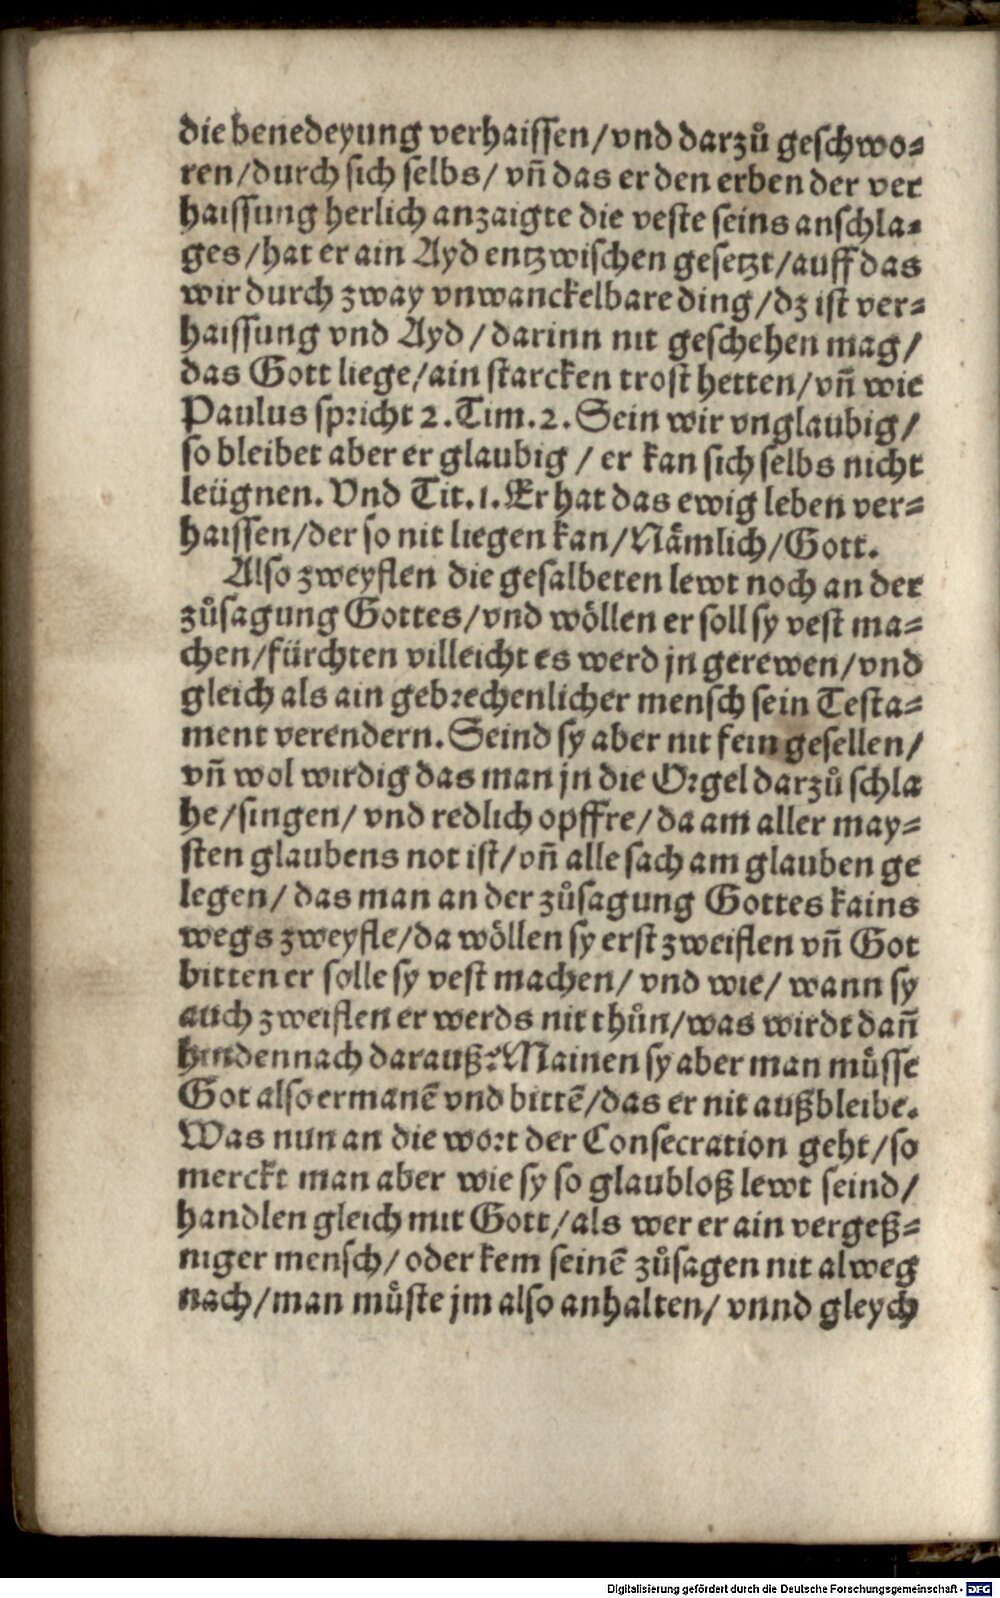 die benedeyung verhaissen/vnd darzů geschwo⸗
ren/durch sich selbs/ vñ das er den erben der ver
haissung herlich anzaigte die veste seins anschla⸗
ges/hat er ain Ayd entzwischen gesetzt/auff das
wir durch zway vnwanckelbare ding/dz ist ver⸗
haissung vnd Ayd/darinn nit geschehen mag/
das Gott liege/ain starcken trost hetten/vñ wie
Paulus spricht 2.Tim.2.Sein wir vnglaubig/
so bleibet aber er glaubig/er kan sich selbs nicht
leügnen. Vnd Tit.1.Er hat das ewig leben ver⸗
haissen/der so nit liegen kan/Nämlich/Gott.
Also zweyflen die gesalbeten lewt noch an der
zůsagung Gottes/vnd wöllen er soll sy vest ma⸗
chen/fürchten villeicht es werd jn gerewen/vnd
gleich als ain gebrechenlicher mensch sein Testa⸗
ment verendern. Seind sy aber nit fein gesellen/
vñ wol wirdig das man jn die Orgel darzů schla
he/singen/ vnd redlich opffre/da am aller may⸗
sten glaubens not ist/vñ alle sach am glauben ge
legen/das man an der zůsagung Gottes kains
wegs zweyfle/da wöllen sy erst zweiflen vñ Got
bitten er solle sy vest machen/ vnd wie/ wann sy
auch zweiflen er werds nit thůn/was wirdt dañ
hindennach darauß? Mainen sy aber man můsse
Got also ermanē vnd bittē/das er nit außbleibe.
Was nun an die wort der Consecration geht/so
merckt man aber wie sy so glaubloß lewt seind/
handlen gleich mit Gott/als wer er ain vergeß⸗
niger mensch/oder kem seinē zůsagen nit alweg
nach/man můste jm also anhalten/ vnnd gleych
Digitalisierung gefördert durch die Deutsche Forschungsgemeinschaft - DFG